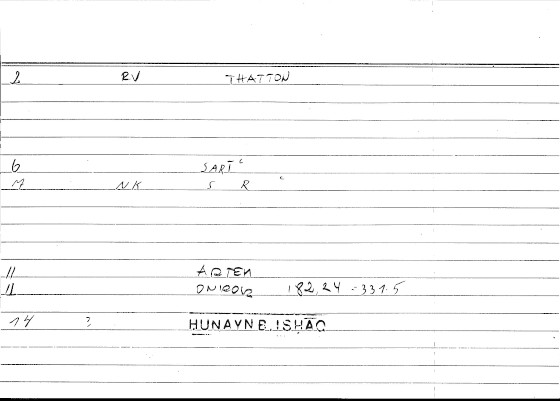 2 RV THATTON
6 SART
M NK S R
11 AQTEN
11 182,24 - 331.5
14 ? HUNAYN B. ISHĀQ